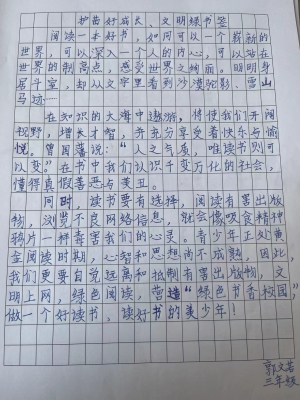 护苗好成长、文明绿书签
阅读一本好书，如同可以一个崭新的
世界，可以深入一个人的内心，可以站在
世界的制高点，感受世界之绚丽。明明身
居斗室，却从文字里看到沙漠驼影、雪山
马迹……
在知识的大海中遨游，将使我们开阔
视野，增长才智，并充分享受着快乐与愉
悦。曾国藩说：“人之气质，唯读书则可
以变。”在书中我们认识千变万化的社会，
懂得真假善恶与美丑。
同时，读书要有选择，阅读有害出版
物，浏览不良网络信息，就会像吸食精神
鸦片一样毒害我们的心灵。青少年正处黄
金阅读时期，心智和思想尚不成熟，因此，
我们更要自觉远离和抵制有害出版物，文
明上网，绿色阅读，营造“绿色书香校园”，
做一个好读书，读好书的美少年！
郭文茗
三年级